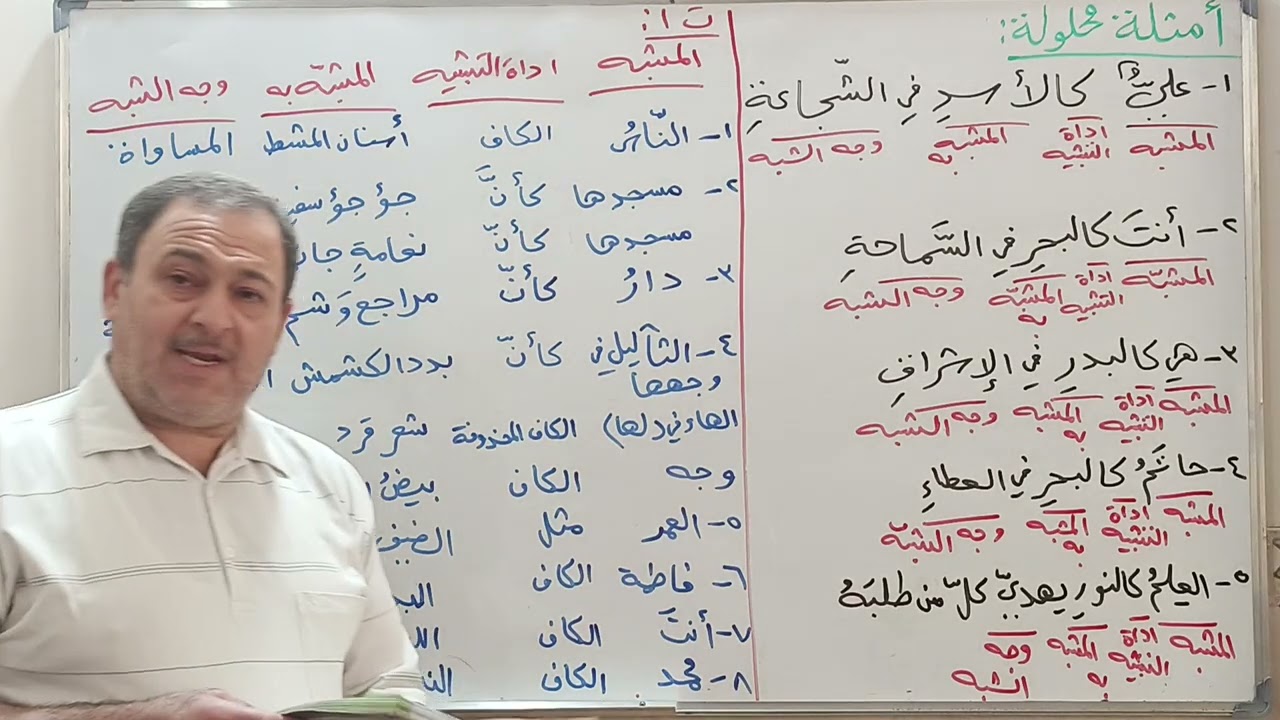 أمثلة محلولة:
١- عليٌّ كالأسدِ في الشّجاعةِ
المشبه أداة التشبيه المشبه به وجه الشبه
٢- أنتَ كالبحرِ في السَّماحةِ
المشبّه أداة التشبيه المشبّه به وجه الشبه
٣- هي كالبدرِ في الإشراقِ
المشبه أداة التشبيه المشبه به وجه الشبه
٤- حاتمُ كالبحرِ في العطاءِ
المشبه أداة التشبيه المشبه به وجه الشبه
٥- العلمُ كالنورِ يهدي كلّ من طلبَهُ
المشبه أداة التشبيه المشبه به وجه الشبه
ت ١:
المشبه اداة التشبيه المشبّه به وجه الشبه
١- النّاسُ الكاف أسنان المشط المساواة
٢- مسجدها كأنَّ جؤجؤ
مسجدها كأنّ نعامةٍ
٣- دارُ كأنّ مراجع وَشم
٤- الثآليل في وجهها كأنّ بدد الكشمش
الهاء في (لها) الكاف المحذوفة شعر قرد
وجه الكاف بيضُ
٥- العمر مثل
٦- فاطمة الكاف
٧- أنتَ الكاف
٨- محمد الكاف